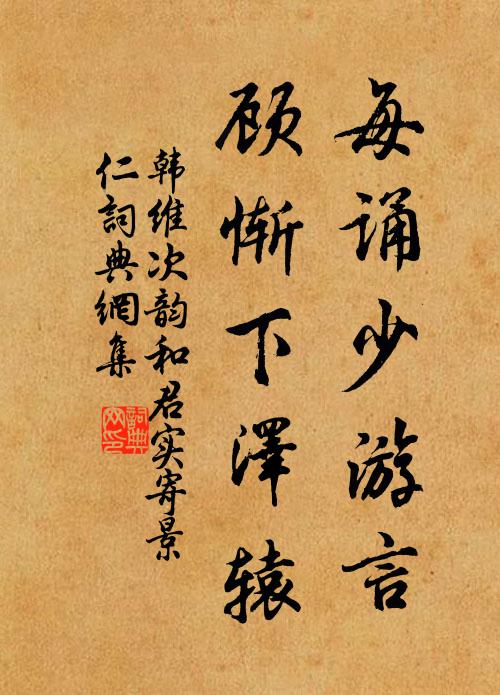 每诵少游言
顾惭下澤辕
韩维次韵和君实寄景
仁詞典網集
詞典网印